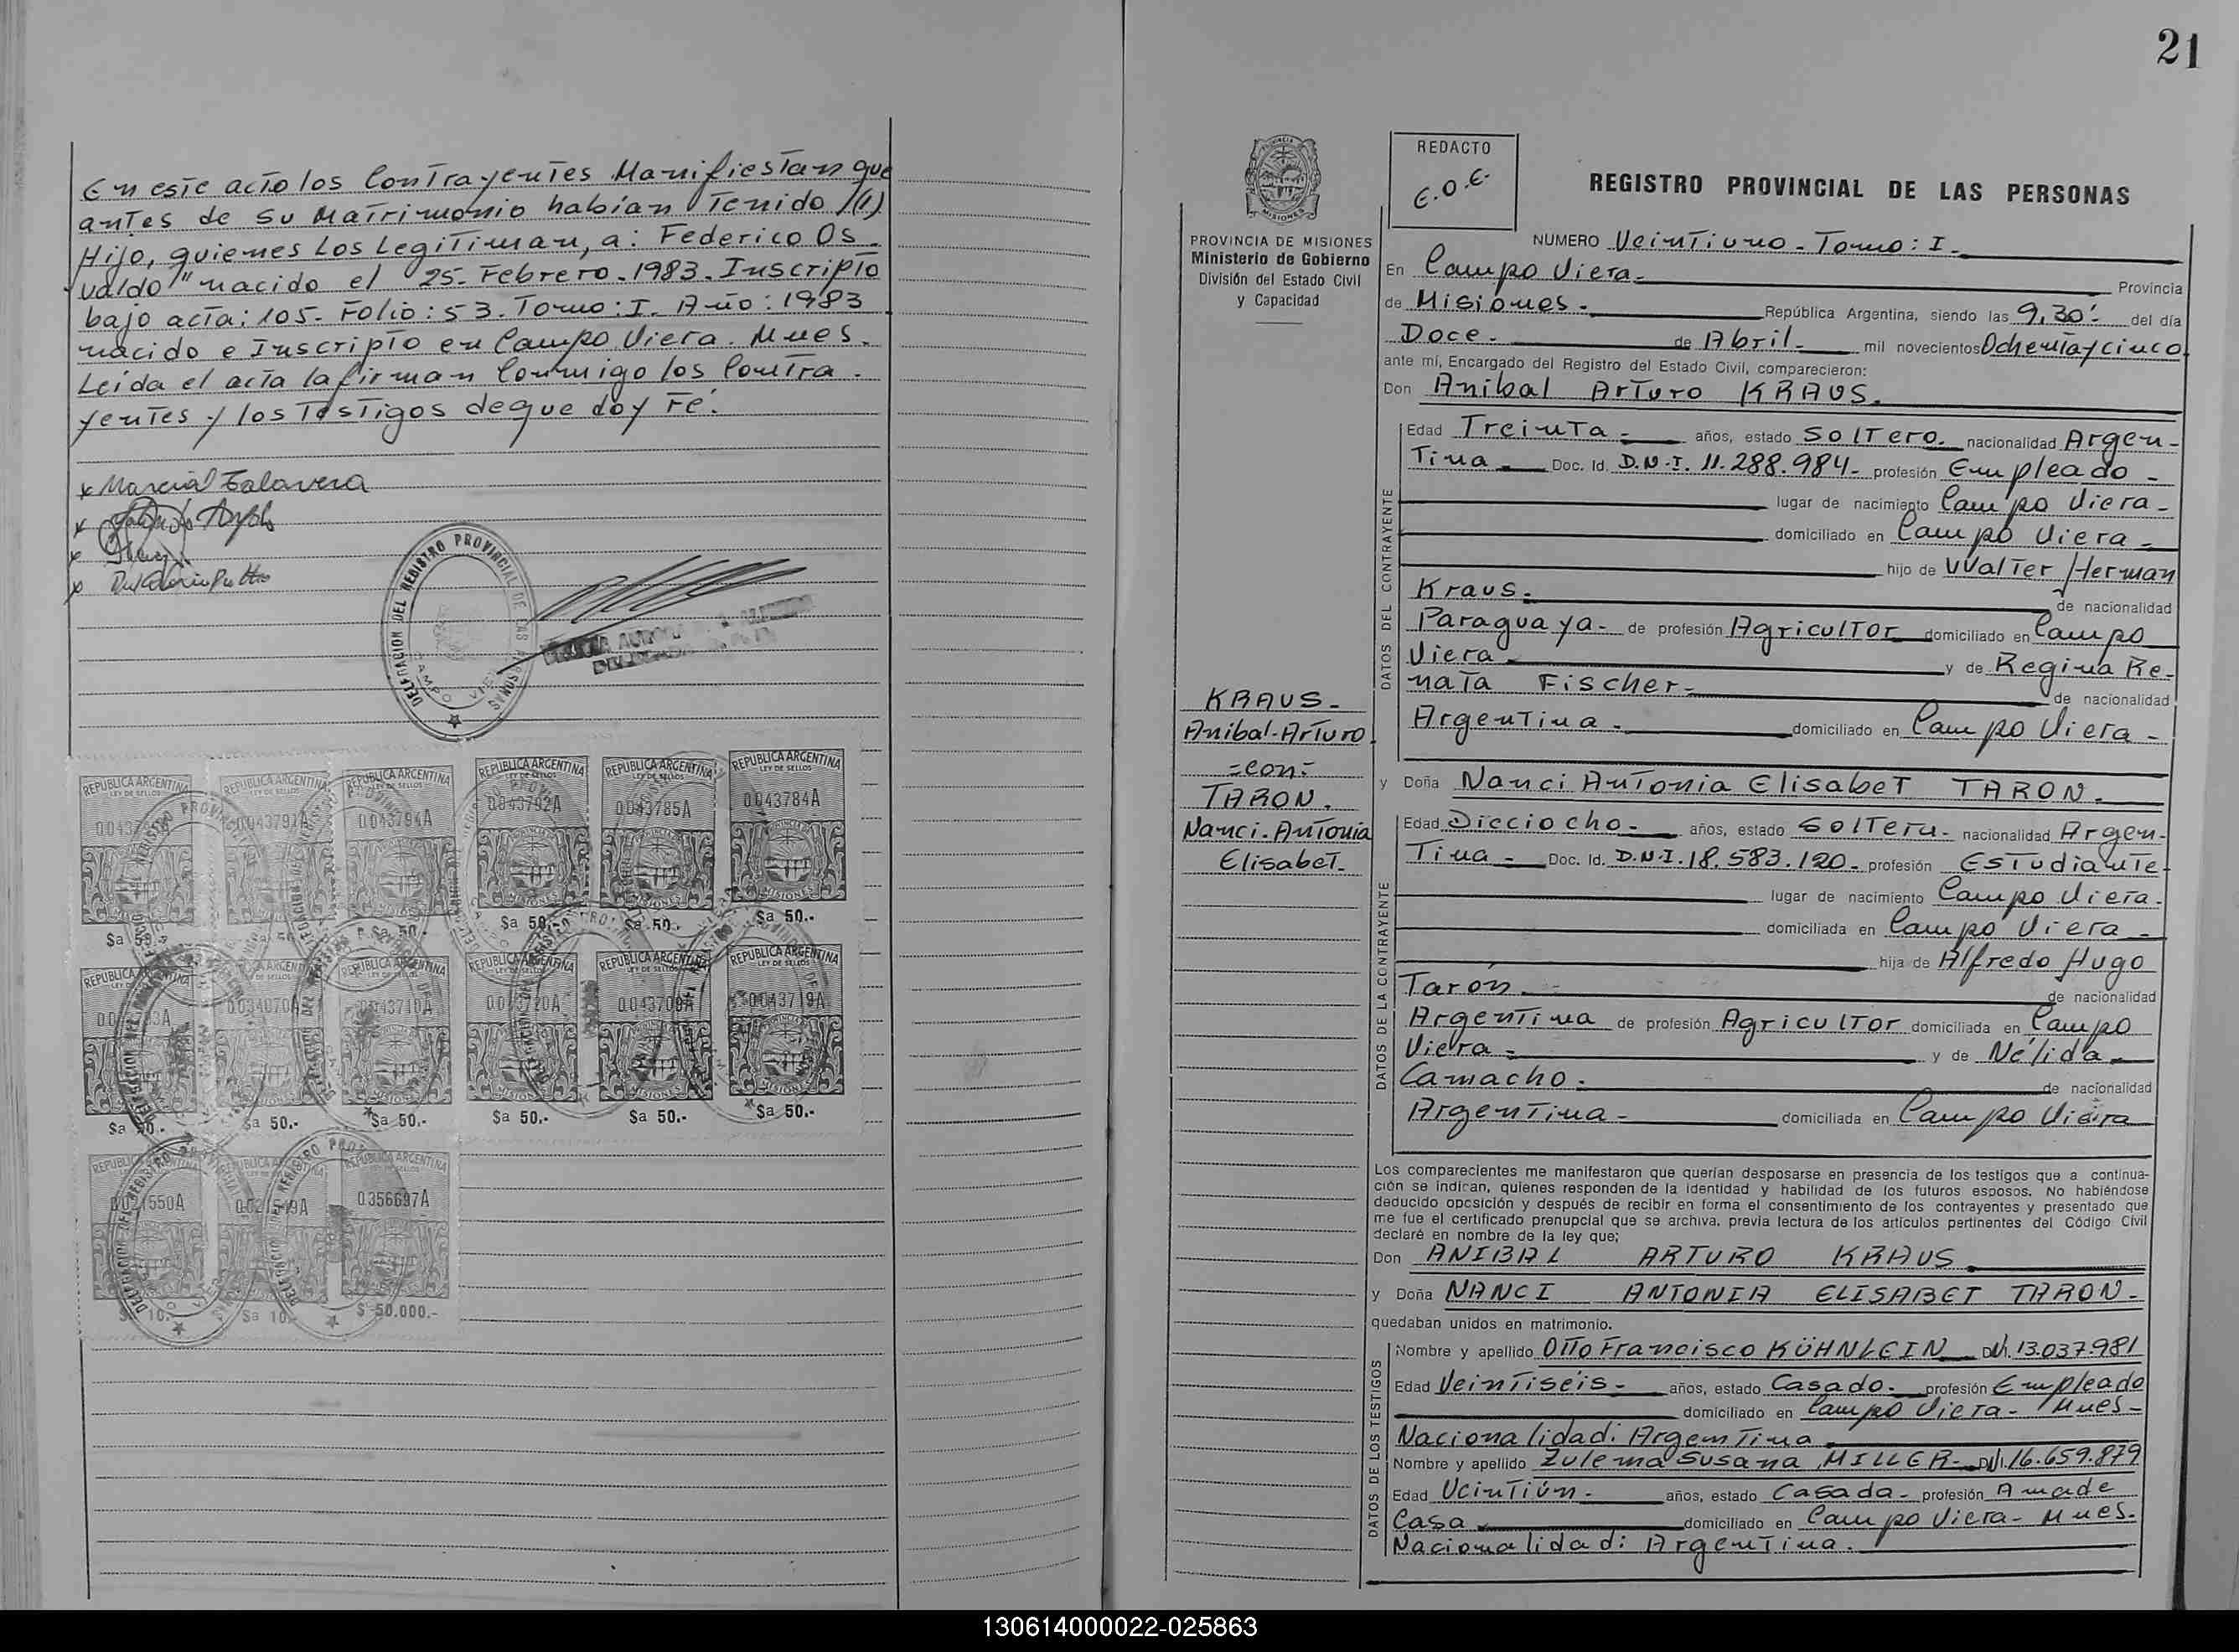 En este acto los Contrayentes Manifiestan que
antes de su Matrimonio habian Tenido /(1)
Hijo, quienes Los Legitiman, a: Federico Os-
valdo" nacido el 25- Febrero-1983. Inscripto
bajo acta: 105- Folio: 53. Tomo: I. Año: 1983
nacido e Inscripto en Campo Viera. Mnes.
Leida el acta la firman Conmigo los Contra-
yentes y los Testigos de que doy Fé.
x Marcial Talavera
DELEGACION DEL REGISTRO PROVINCIAL DE LAS PERSONAS
CAMPO VIERA
REPUBLICA ARGENTINA REPUBLICA ARGENTINA REPUBLICA ARGENTINA REPUBLICA ARGENTINA REPUBLICA ARGENTINA REPUBLICA ARGENTINA
LEY DE SELLOS LEY DE SELLOS LEY DE SELLOS LEY DE SELLOS LEY DE SELLOS LEY DE SELLOS
0043791A 0043794A 0043792A 0043785A 0043784A
MISIONES MISIONES MISIONES
$a 50.- $a 50.- $a 50.- $a 50.- $a 50.-
REPUBLICA ARGENTINA REPUBLICA ARGENTINA REPUBLICA ARGENTINA REPUBLICA ARGENTINA REPUBLICA ARGENTINA REPUBLICA ARGENTINA
0034070A 0043710A 0043709A 0043719A
$a 50.- $a 50.- $a 50.- $a 50.- $a 50.- $a 50.-
REPUBLICA ARGENTINA REPUBLICA ARGENTINA REPUBLICA ARGENTINA
0021550A 0021549A 0356697A
$a 10.- $a 10.- $ 50.000.-
21
PROVINCIA DE MISIONES
Ministerio de Gobierno
División del Estado Civil
y Capacidad
KRAUS-
Anibal-Arturo
=con=
TARON.
Nanci-Antonia
Elisabet-
REDACTO
E.O.E.
REGISTRO PROVINCIAL DE LAS PERSONAS
NUMERO Veintiuno-Tomo: I-
En Campo Viera- Provincia
de Misiones- República Argentina, siendo las 9,30'- del día
Doce- de Abril- mil novecientos Ochenta y cinco
ante mí, Encargado del Registro del Estado Civil, comparecieron:
Don Anibal Arturo KRAUS.
DATOS DEL CONTRAYENTE
Edad Treinta- años, estado Soltero- nacionalidad Argen-
Tina- Doc. Id. D.N.I. 11.288.984- profesión Empleado-
lugar de nacimiento Campo Viera-
domiciliado en Campo Viera-
hijo de Walter Herman
Kraus- de nacionalidad
Paraguaya- de profesión Agricultor domiciliado en Campo
Viera- y de Regina Re-
nata Fischer- de nacionalidad
Argentina- domiciliado en Campo Viera-
y Doña Nanci Antonia Elisabet TARON-
DATOS DE LA CONTRAYENTE
Edad Dieciocho- años, estado Soltera- nacionalidad Argen-
Tina- Doc. Id. D.N.I. 18.583.120- profesión Estudiante-
lugar de nacimiento Campo Viera-
domiciliada en Campo Viera-
hija de Alfredo Hugo
Tarón- de nacionalidad
Argentina de profesión Agricultor domiciliada en Campo
Viera- y de Nélida-
Camacho- de nacionalidad
Argentina- domiciliada en Campo Viera
Los comparecientes me manifestaron que querían desposarse en presencia de los testigos que a continua-
ción se indican, quienes responden de la identidad y habilidad de los futuros esposos. No habiéndose
deducido oposición y después de recibir en forma el consentimiento de los contrayentes y presentado que
me fue el certificado prenupcial que se archiva, previa lectura de los artículos pertinentes del Código Civil
declaré en nombre de la ley que;
Don ANIBAL ARTURO KRAUS
y Doña NANCI ANTONIA ELISABET TARON-
quedaban unidos en matrimonio.
DATOS DE LOS TESTIGOS
Nombre y apellido Otto Francisco KÜHNLEIN DNI. 13.037.981
Edad Veintiséis- años, estado Casado- profesión Empleado
domiciliado en Campo Viera- Mnes-
Nacionalidad: Argentina
Nombre y apellido Zulema Susana MILLER- DNI. 16.659.879
Edad Veintiún- años, estado Casada- profesión Ama de
Casa- domiciliado en Campo Viera- Mnes-
Nacionalidad: Argentina.
130614000022-025863